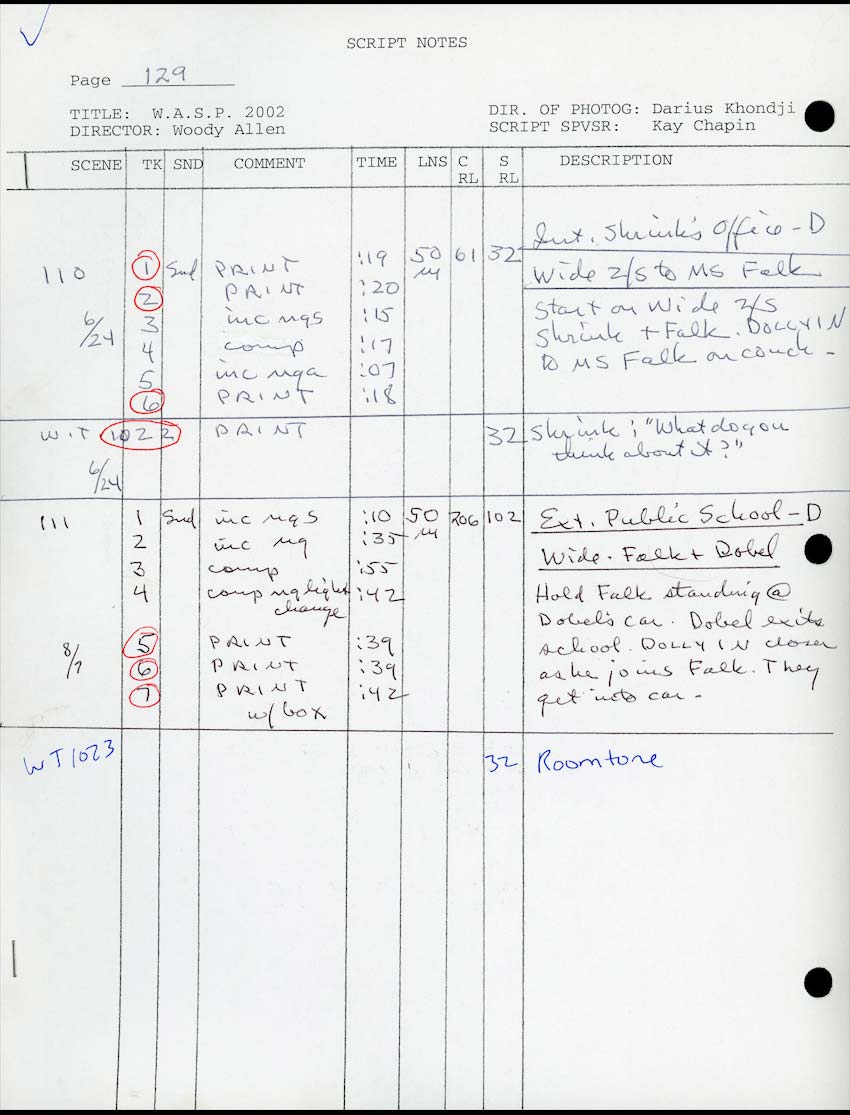 SCRIPT NOTES
Page 129
TITLE: W.A.S.P. 2002 DIR. OF PHOTOG: Darius Khondji
DIRECTOR: Woody Allen SCRIPT SPVSR: Kay Chapin
SCENE TK SND COMMENT TIME LNS C RL S RL DESCRIPTION
Int. Shrink's Office - D
110 1 Snd PRINT :19 50 M 61 32 Wide 2/S to MS Falk
2 PRINT :20 Start on Wide 2/S
6/24 3 inc ngs :15 Shrink + Falk. DOLLY IN
4 comp :17 to MS Falk on couch -
5 inc nga :07
6 PRINT :18
W.T 1022 PRINT 32 Shrink: "What do you
6/24 think about it?"
111 1 Snd inc ngs :10 50 M 206 102 Ext. Public School - D
2 inc ng :35 Wide. Falk + Dobel
3 comp :55
4 comp ng light :42 Hold Falk standing @
change Dobel's car. Dobel exits
8/7 5 PRINT :39 school. DOLLY IN closer
6 PRINT :39 as he joins Falk. They
7 PRINT :42 get into car -
w/ box
WT 1023 32 Roomtone